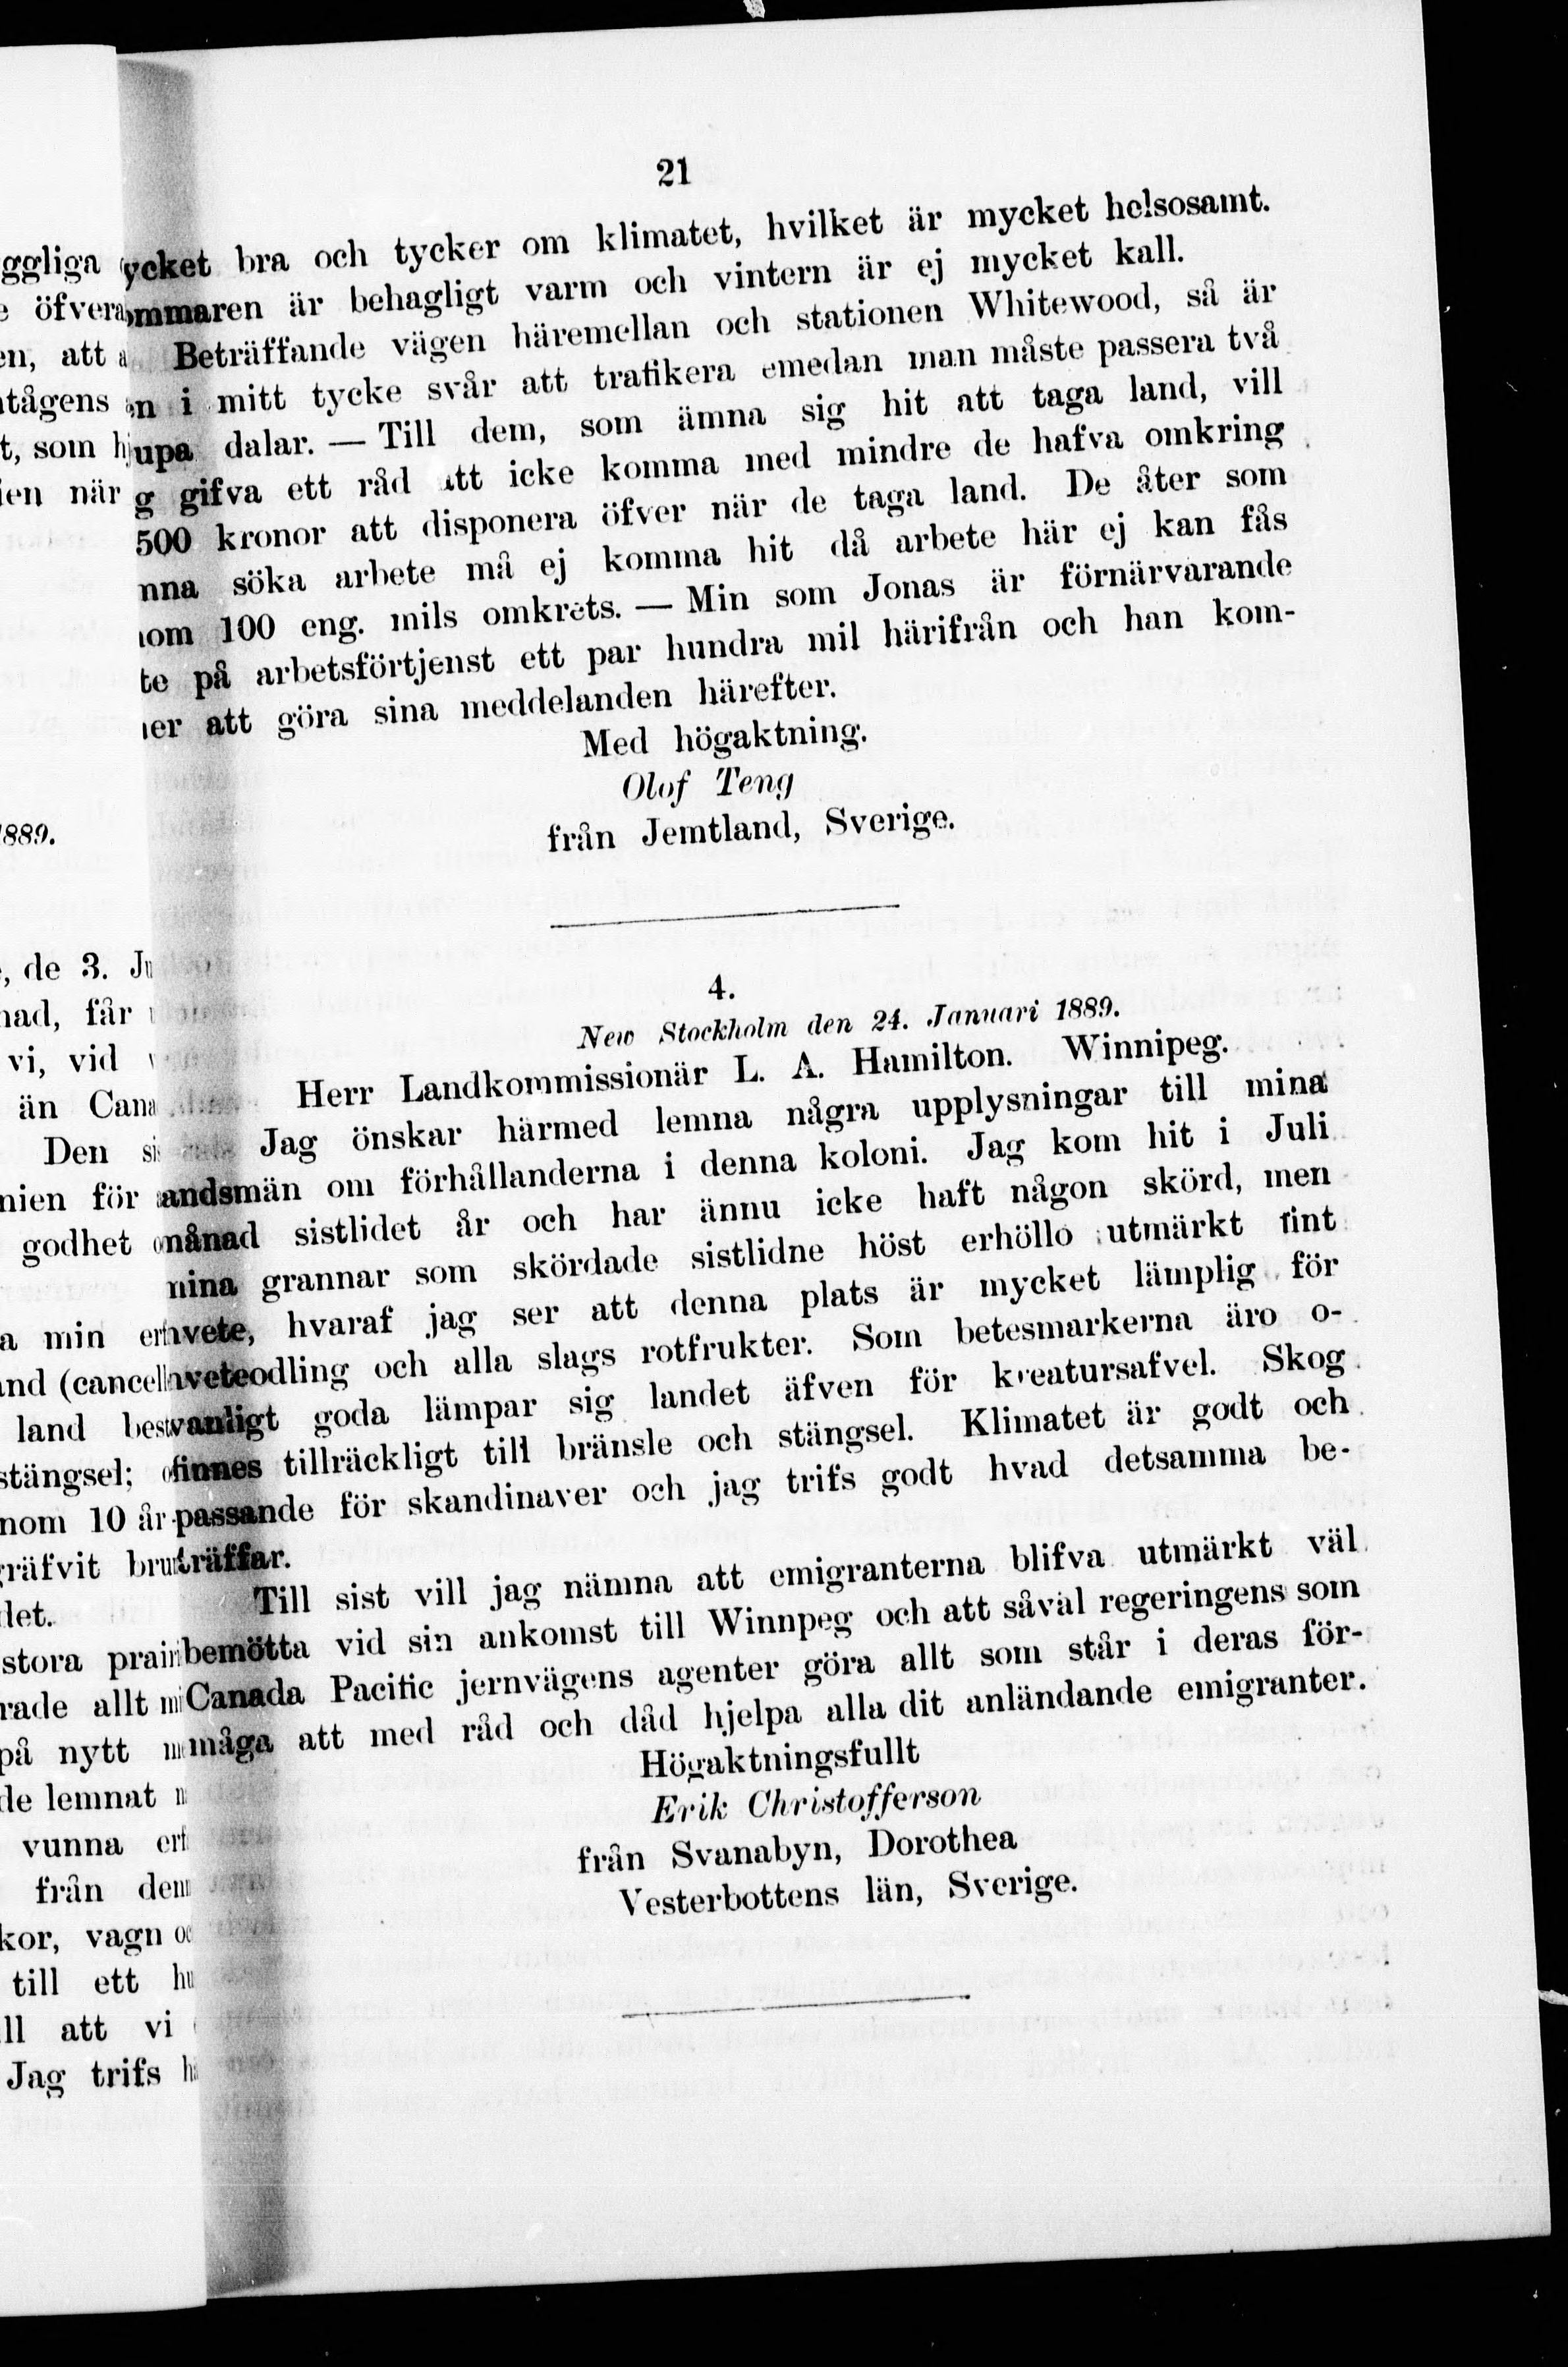 21
ycket bra och tycker om klimatet, hvilket är mycket helsosamt.
ommaren är behagligt varm och vintern är ej mycket kall.
Beträffande vägen häremellan och stationen Whitewood, så är
n i mitt tycke svår att trafikera emedan man måste passera två
upa dalar. — Till dem, som ämna sig hit att taga land, vill
g gifva ett råd att icke komma med mindre de hafva omkring
500 kronor att disponera öfver när de taga land. De åter som
nna söka arbete må ej komma hit då arbete här ej kan fås
om 100 eng. mils omkrets. — Min som Jonas är förnärvarande
te på arbetsförtjenst ett par hundra mil härifrån och han kom-
er att göra sina meddelanden härefter.
Med högaktning.
Olof Teng
från Jemtland, Sverige.
4.
New Stockholm den 24. Januari 1889.
Herr Landkommissionär L. A. Hamilton. Winnipeg.
Jag önskar härmed lemna några upplysningar till mina
andsmän om förhållanderna i denna koloni. Jag kom hit i Juli
månad sistlidet år och har ännu icke haft någon skörd, men
mina grannar som skördade sistlidne höst erhöllo utmärkt fint
hvete, hvaraf jag ser att denna plats är mycket lämplig för
hveteodling och alla slags rotfrukter. Som betesmarkerna äro o-
vanligt goda lämpar sig landet äfven för kreatursafvel. Skog
finnes tillräckligt till bränsle och stängsel. Klimatet är godt och
passande för skandinaver och jag trifs godt hvad detsamma be-
träffar.
Till sist vill jag nämna att emigranterna blifva utmärkt väl
bemötta vid sin ankomst till Winnpeg och att såväl regeringens som
Canada Pacific jernvägens agenter göra allt som står i deras för-
måga att med råd och dåd hjelpa alla dit anländande emigranter.
Högaktningsfullt
Erik Christofferson
från Svanabyn, Dorothea
Vesterbottens län, Sverige.